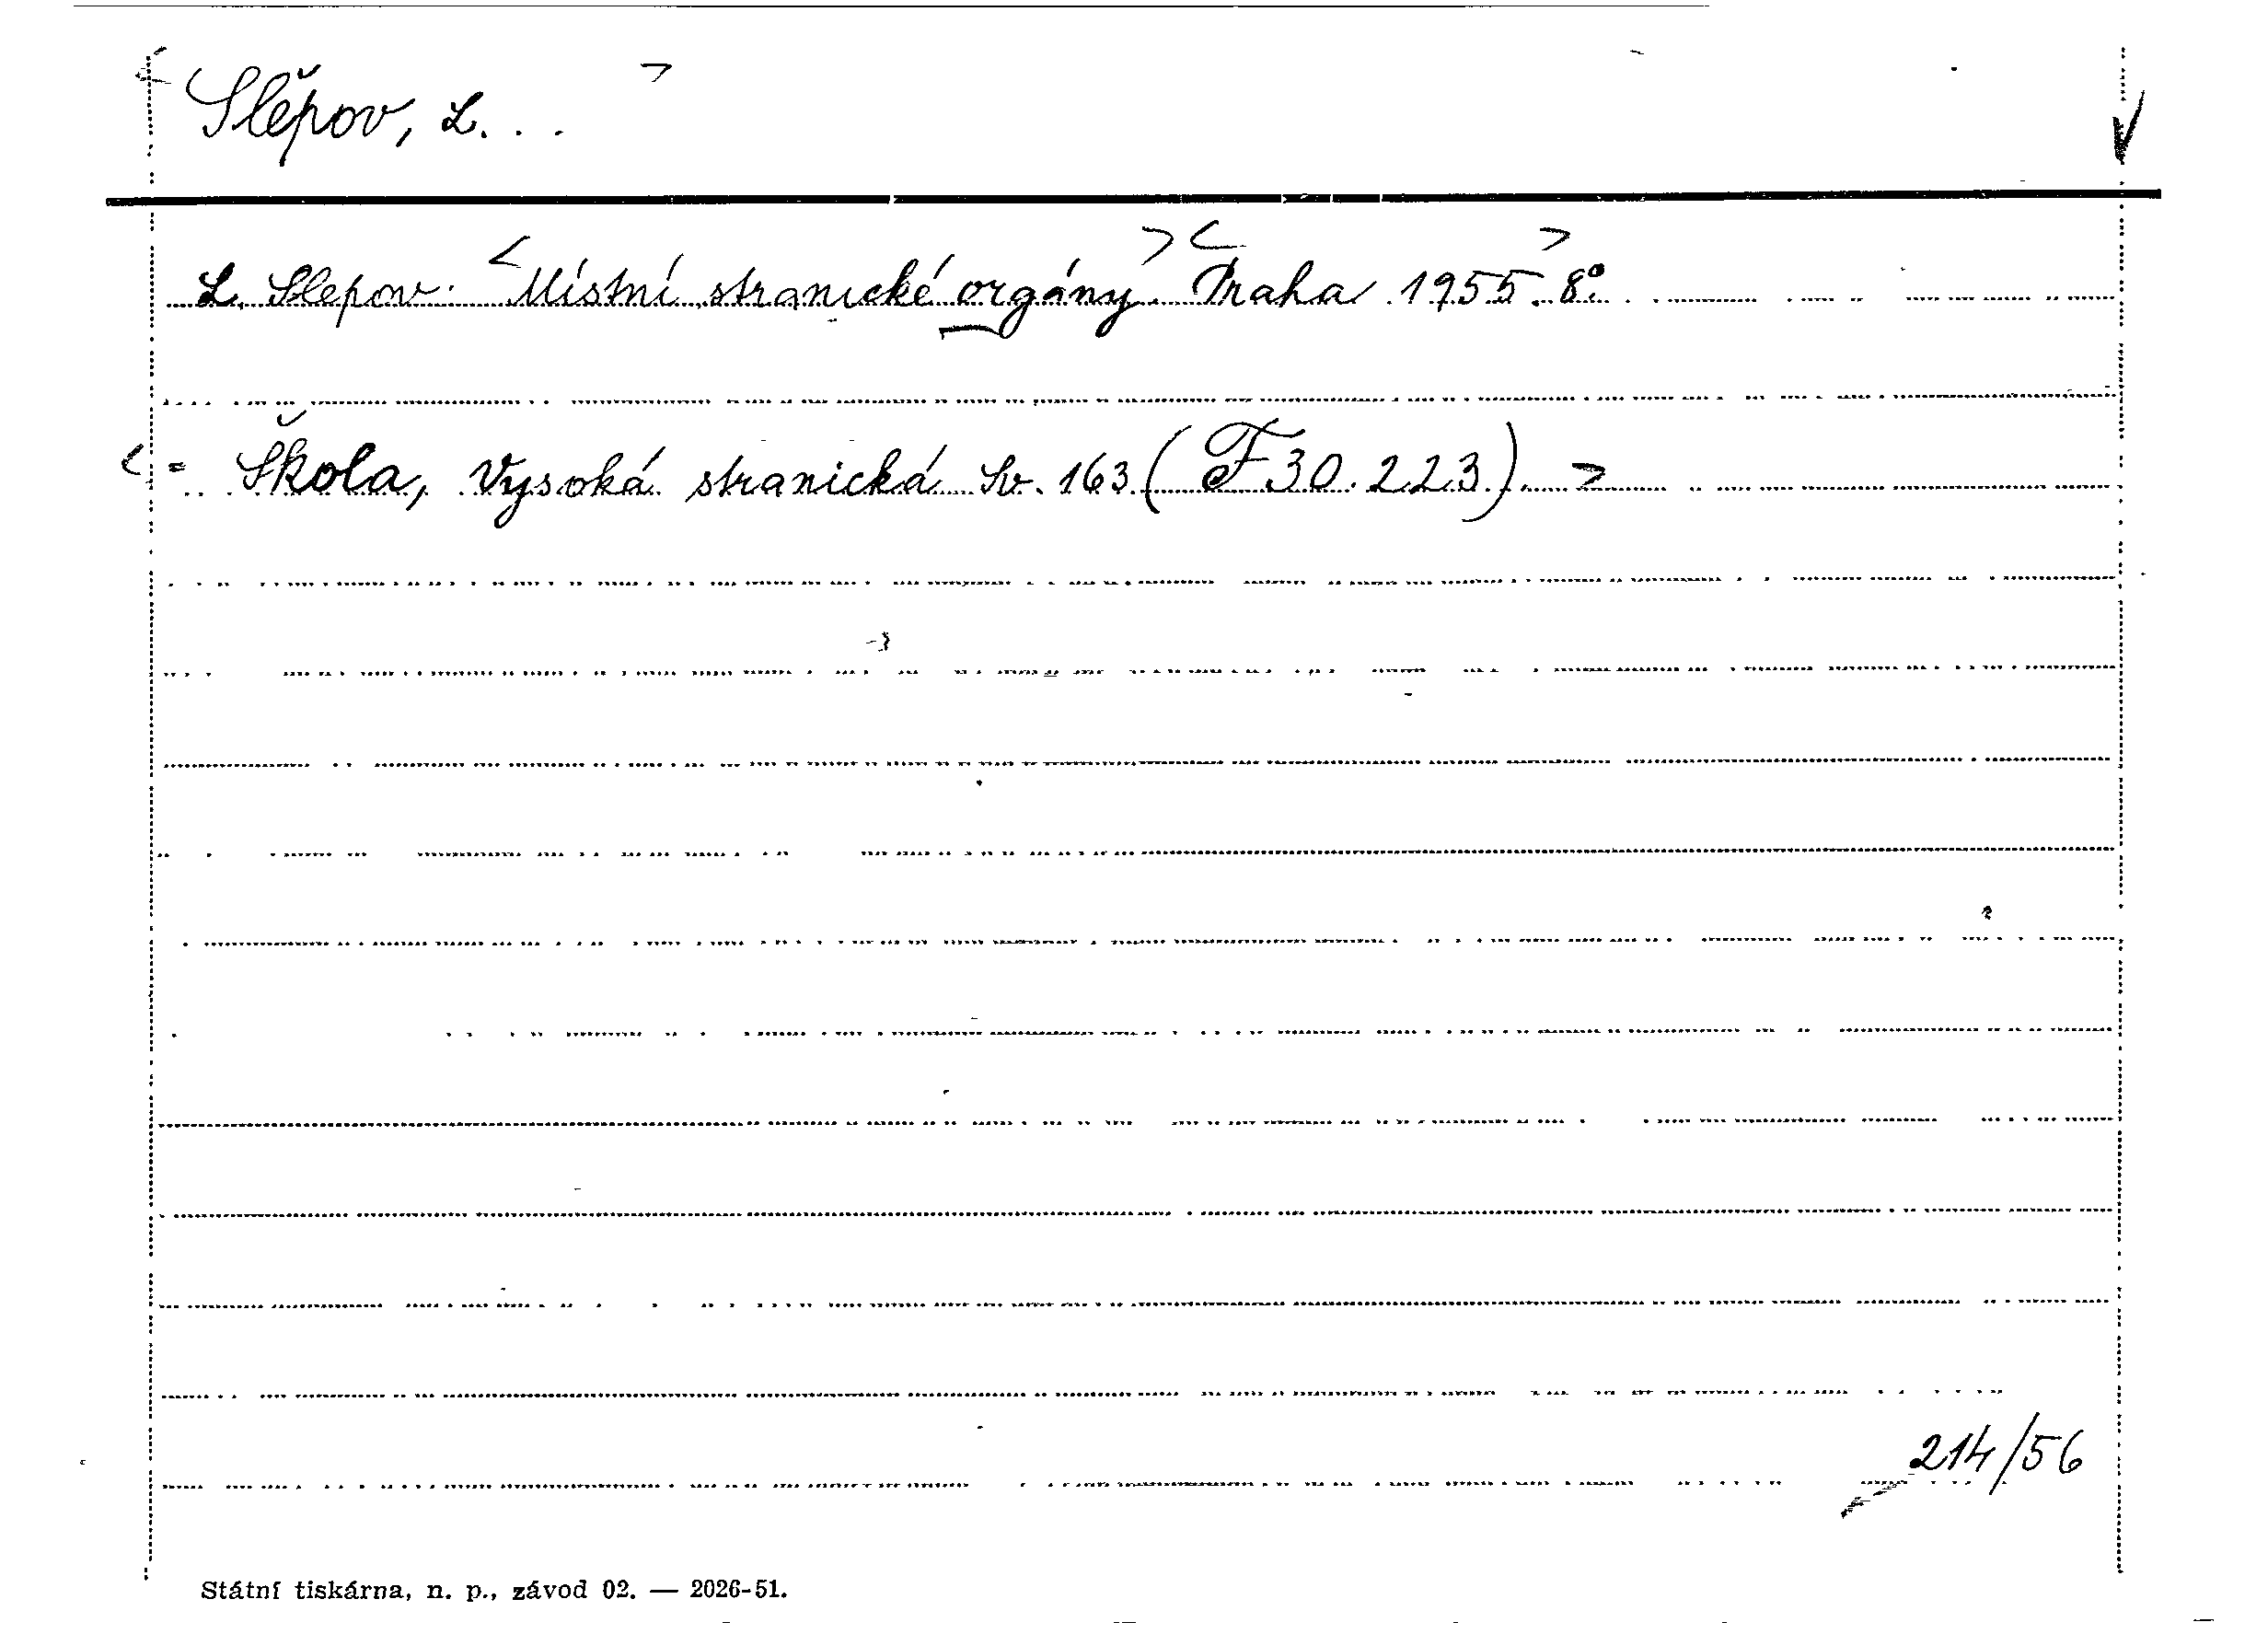 < Slěpov, L. . . >
L. Slepov: <Místní stranické orgány.> <Praha 1955.> 8°.
<= Škola, Vysoká stranická Sv. 163 (F 30.223). >
214/56
Státní tiskárna, n. p., závod 02. — 2026-51.